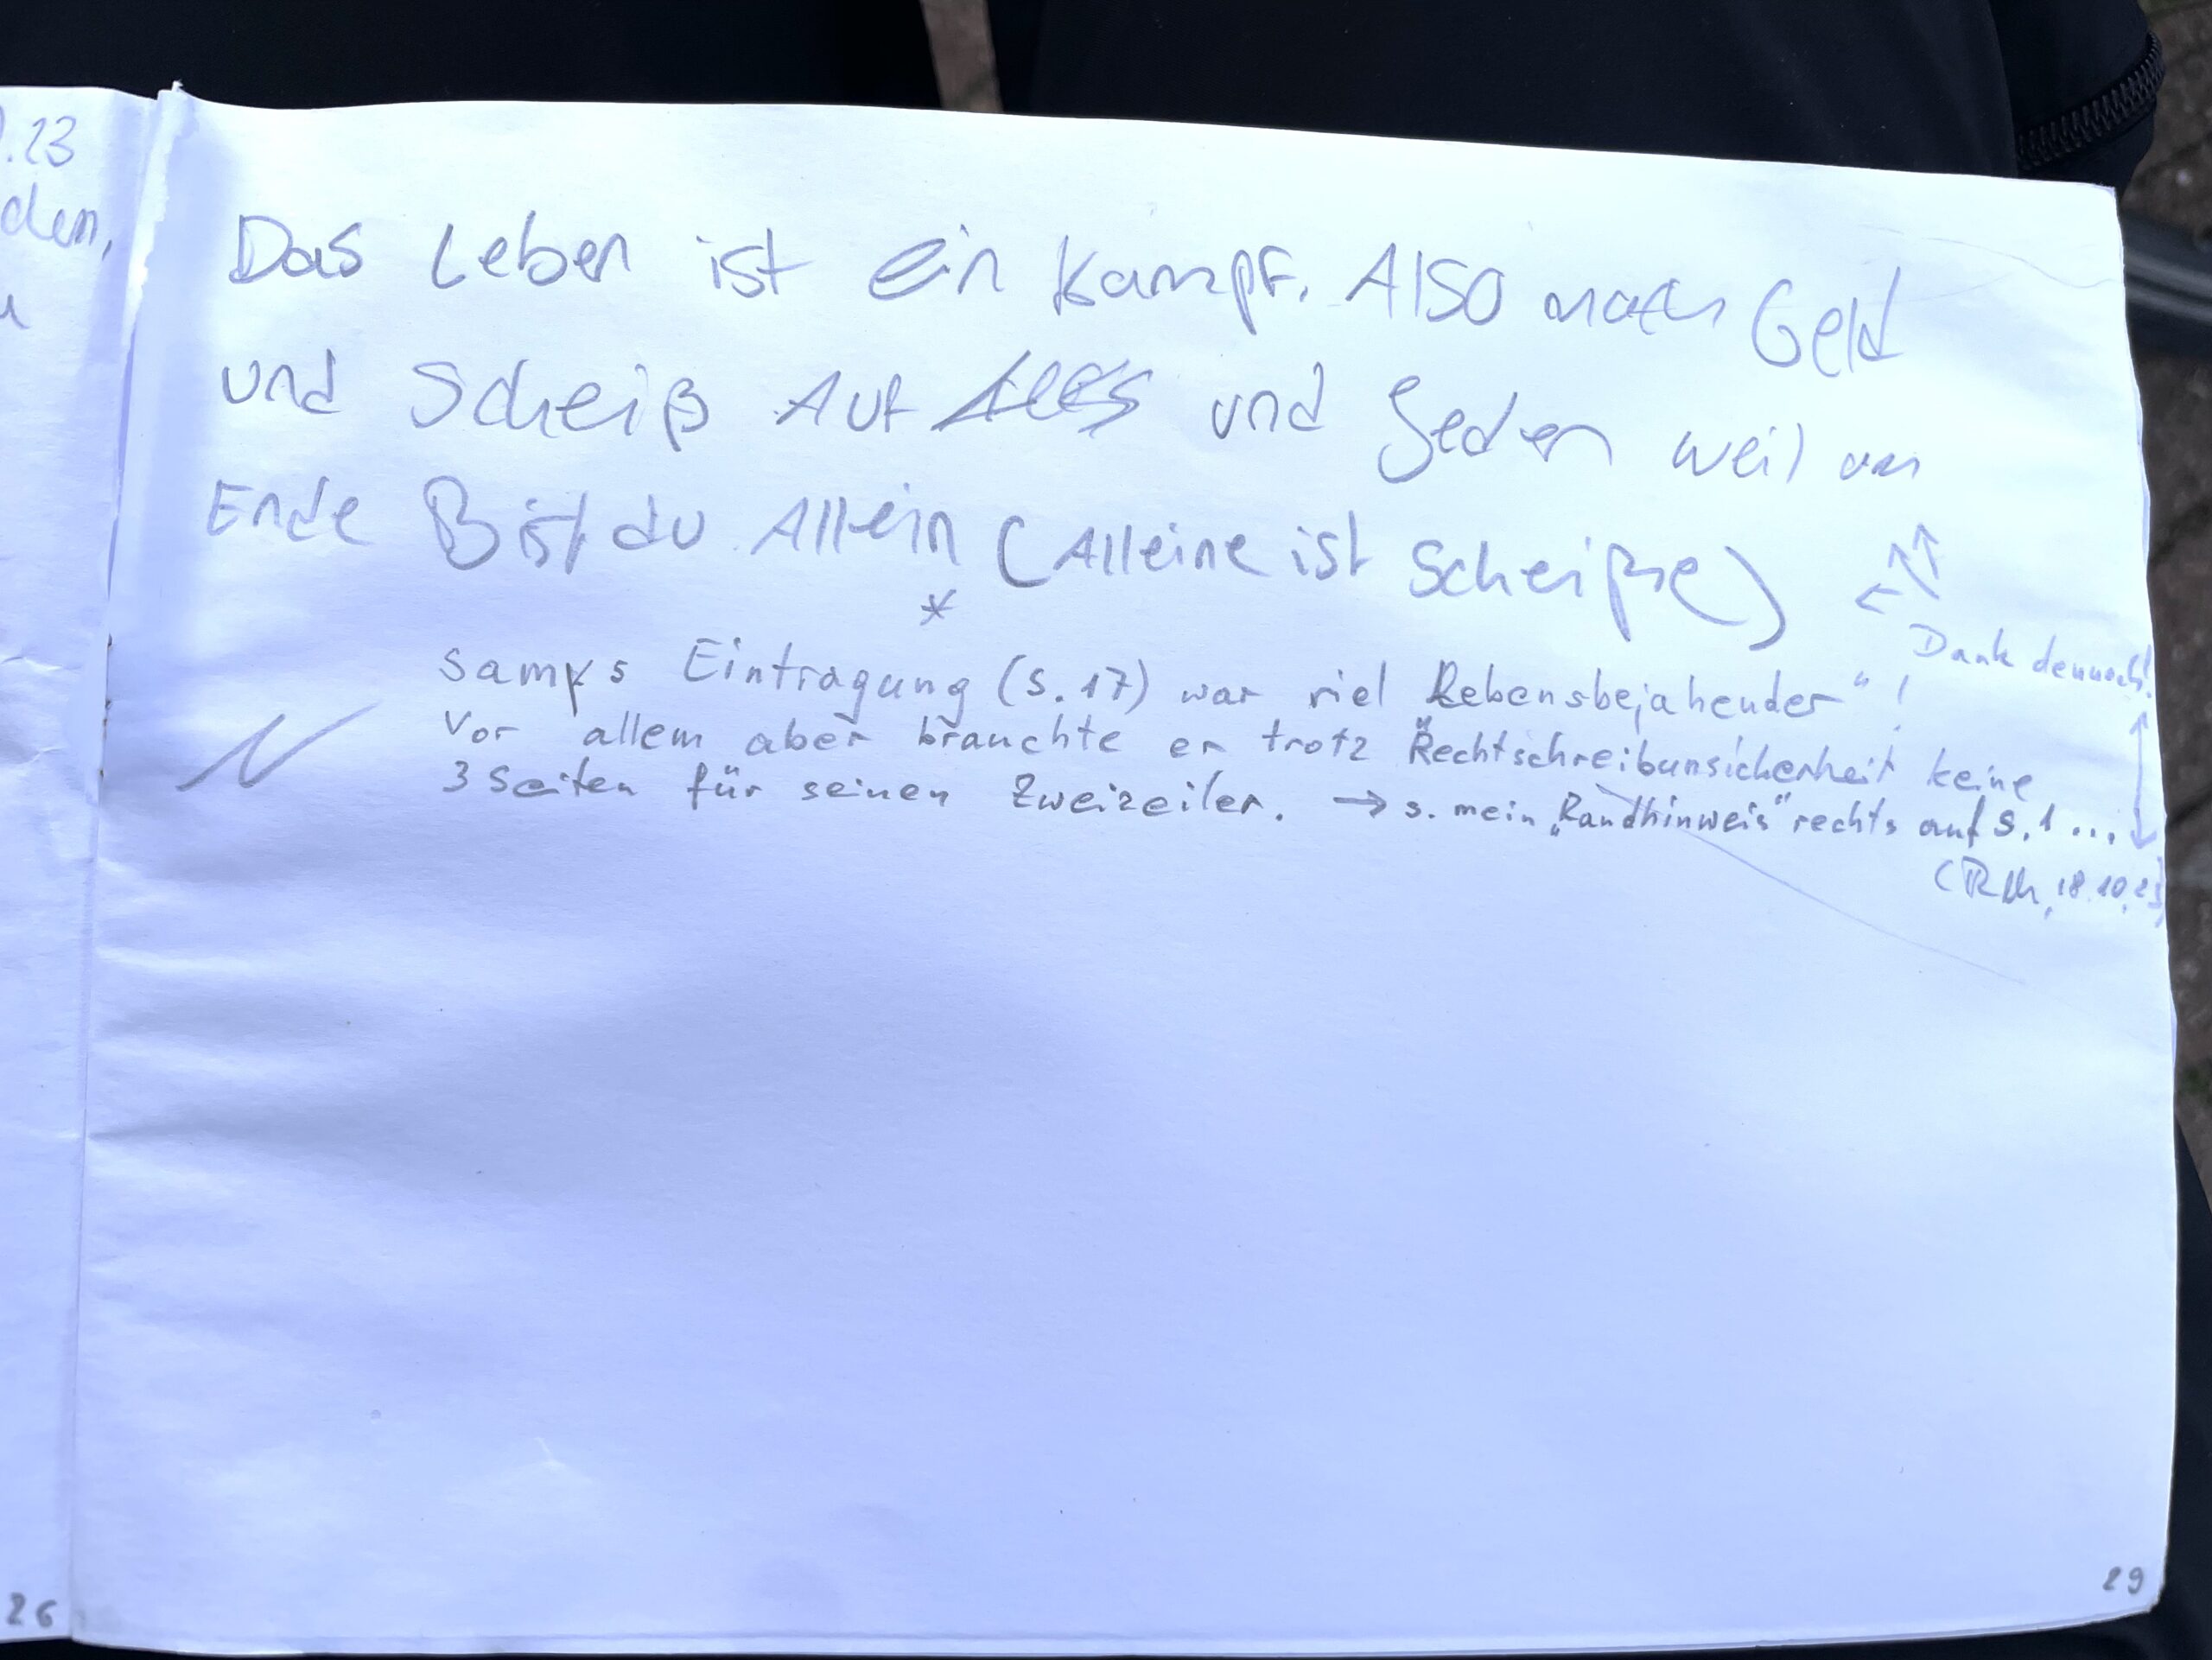 .23
den,
Das Leben ist ein Kampf. Also mach Geld
und Scheiß Auf Alles und Jeden weil am
Ende Bist du Allein (Alleine ist Scheiße)
*
Dank dennoch!
Samys Eintragung (S. 17) war viel Lebensbejahender"!
Vor allem aber brauchte er trotz Rechtschreibunsicherheit keine
3 Seiten für seinen Zweizeiler. → s. mein „Randhinweis" rechts auf S. 1 ...
18.10.23)
26
29